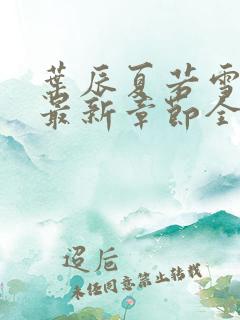 葉辰夏若雪
最新章節全
迢卮
未经同意禁止转载